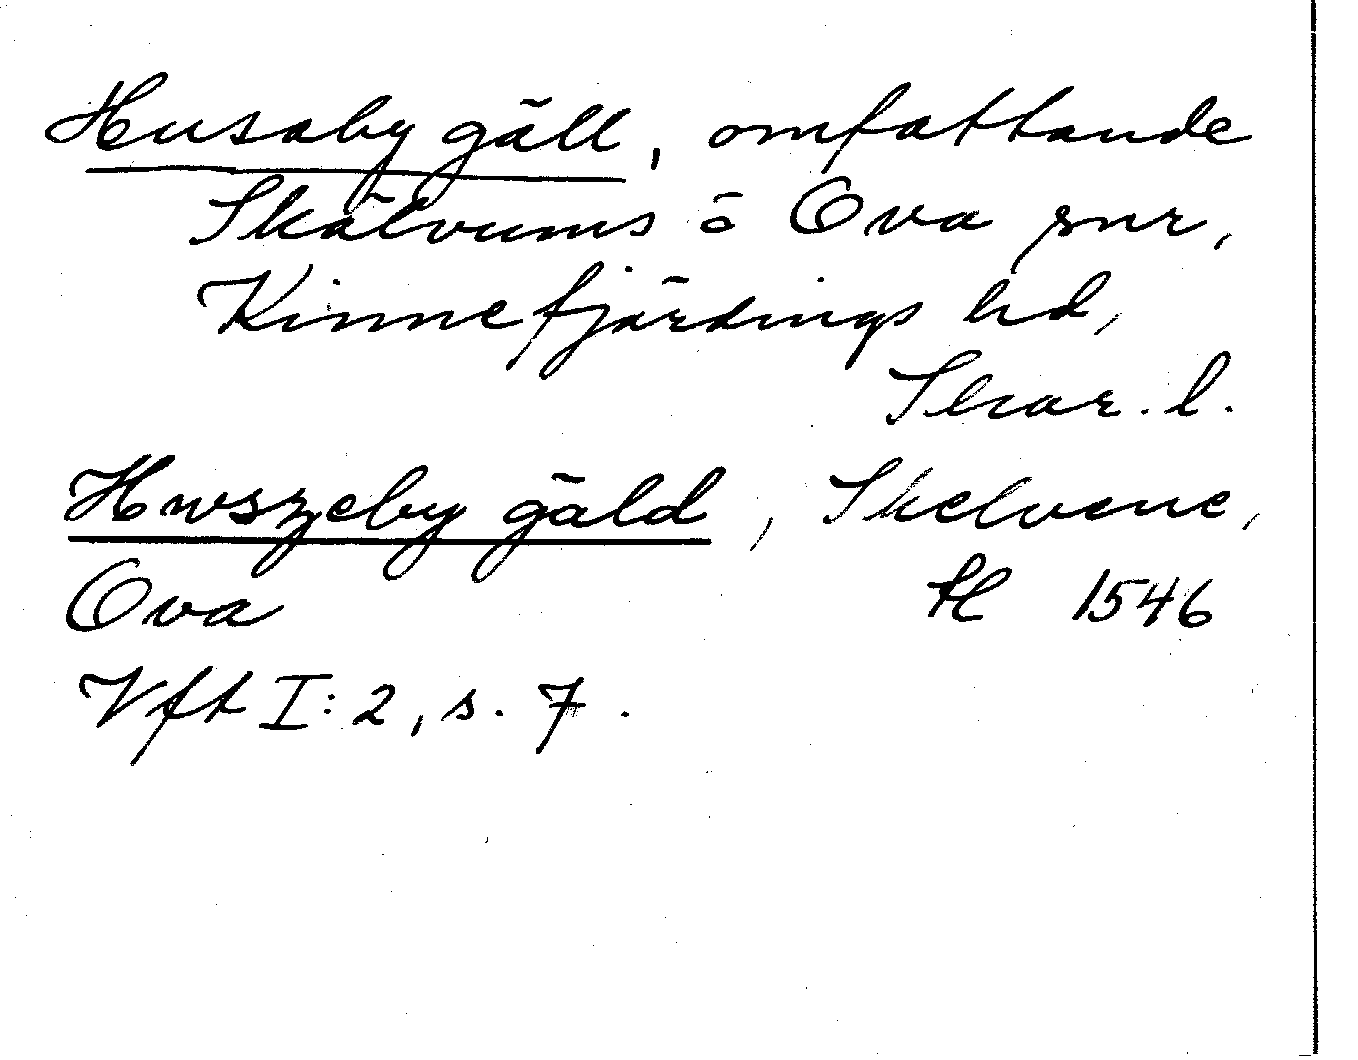 Husaby gäll, omfattande
Skälvums o Ova snr,
Kinnefjärdings hd,
Skar. l.
Hwszeby gäld, Skelvene,
Ova 1546
Vft I:2, s. 7.